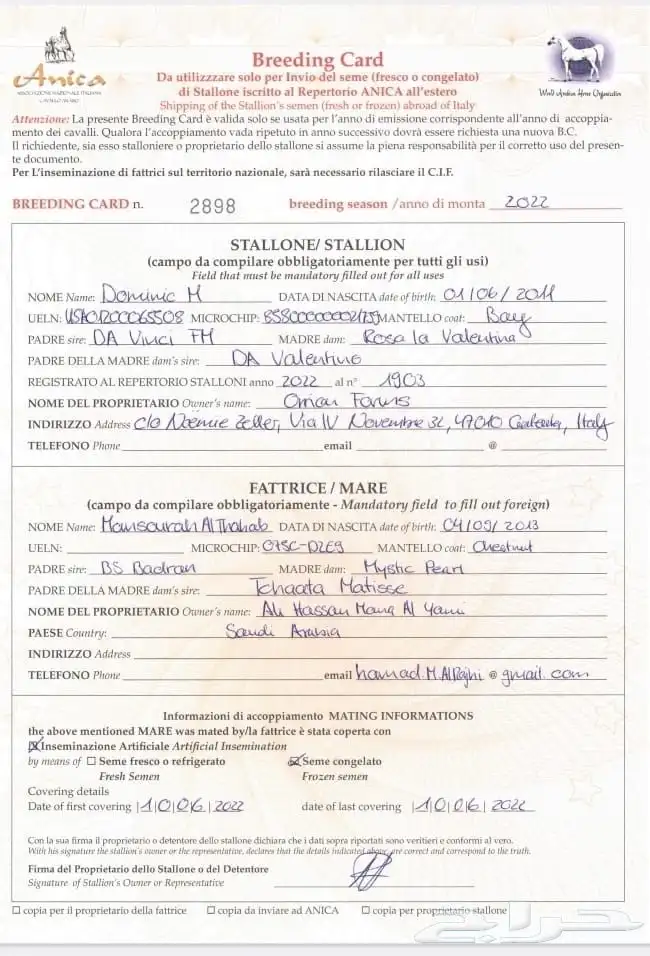 Anica
ASSOCIAZIONE NAZIONALE ITALIANA
CAVALLO ARABO
World Arabian Horse Organization
Breeding Card
Da utilizzzare solo per Invio del seme (fresco o congelato)
di Stallone iscritto al Repertorio ANICA all'estero
Shipping of the Stallion's semen (fresh or frozen) abroad of Italy
Attenzione: La presente Breeding Card è valida solo se usata per l'anno di emissione corrispondente all'anno di accoppia-
mento dei cavalli. Qualora l'accoppiamento vada ripetuto in anno successivo dovrà essere richiesta una nuova B.C.
Il richiedente, sia esso stalloniere o proprietario dello stallone si assume la piena responsabilità per il corretto uso del presen-
te documento.
Per L'inseminazione di fattrici sul territorio nazionale, sarà necessario rilasciare il C.I.F.
BREEDING CARD n. 2898 breeding season /anno di monta 2022
STALLONE/ STALLION
(campo da compilare obbligatoriamente per tutti gli usi)
Field that must be mandatory filled out for all uses
NOME Name: Dominic M DATA DI NASCITA date of birth: 01/06/2011
UELN: USA01200065508 MICROCHIP: MANTELLO coat: Bay
PADRE sire: DA Vinci FM MADRE dam: Rosa la Valentina
PADRE DELLA MADRE dam's sire: DA Valentino
REGISTRATO AL REPERTORIO STALLONI anno 2022 al n° 1903
NOME DEL PROPRIETARIO Owner's name: Omar
INDIRIZZO Address c/o Noemie Zeller, Via IV Novembre 32, 47010 Italy
TELEFONO Phone email @
FATTRICE / MARE
(campo da compilare obbligatoriamente - Mandatory field to fill out foreign)
NOME Name: Mansourah Al Thahab DATA DI NASCITA date of birth: 04/09/2013
UELN: MICROCHIP: 07SC-D2E9 MANTELLO coat: Chestnut
PADRE sire: BS Badran MADRE dam: Mystic Pearl
PADRE DELLA MADRE dam's sire: Tchaata Matisse
NOME DEL PROPRIETARIO Owner's name: Ali Hassan Mana Al Yami
PAESE Country: Saudi Arabia
INDIRIZZO Address
TELEFONO Phone email hamad.M.AlRajhi @ gmail.com
Informazioni di accoppiamento MATING INFORMATIONS
the above mentioned MARE was mated by/la fattrice è stata coperta con
☒ Inseminazione Artificiale Artificial Insemination
by means of ☐ Seme fresco o refrigerato ☑ Seme congelato
Fresh Semen Frozen semen
Covering details
Date of first covering |1|0|0|6| 2022 date of last covering |1|0|0|6| 2022
Con la sua firma il proprietario o detentore dello stallone dichiara che i dati sopra riportati sono veritieri e conformi al vero.
With his signature the stallion's owner or the representative, declares that the details indicated above, are correct and correspond to the truth.
Firma del Proprietario dello Stallone o del Detentore
Signature of Stallion's Owner or Representative
☐ copia per il proprietario della fattrice ☐ copia da inviare ad ANICA ☐ copia per proprietario stallone
حراج